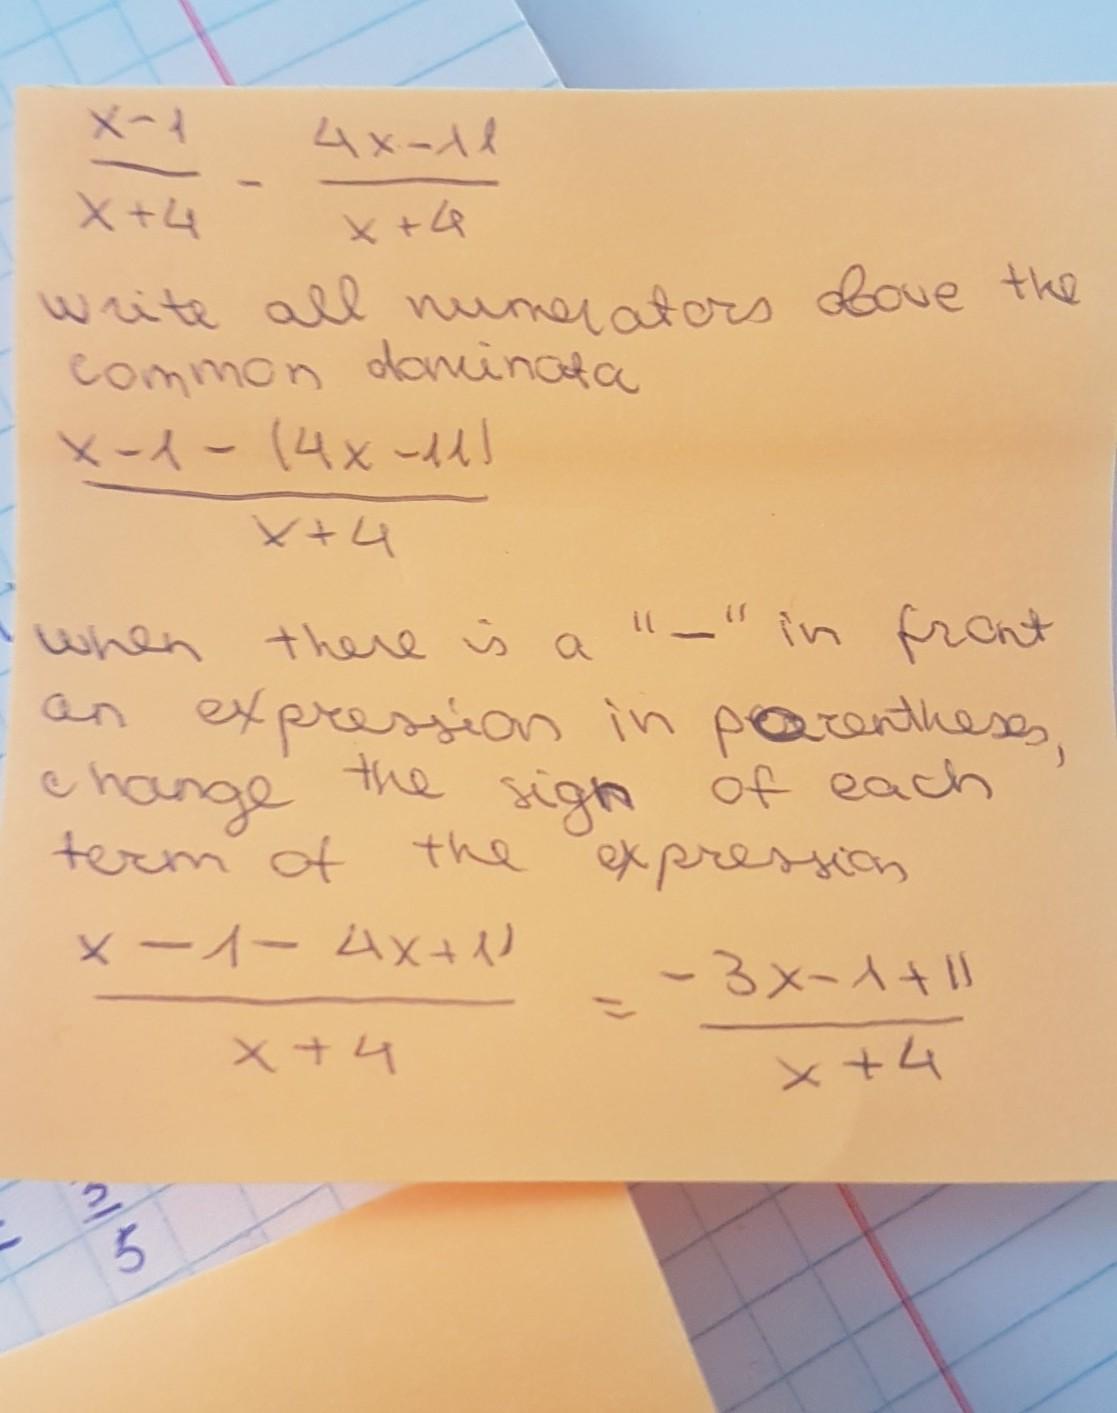 x-1      4x-11
——— - ————
x+4      x+4
write all numerators above the
common dominata
x-1-(4x-11)
——————
x+4
when there is a "—" in front
an expression in parentheses,
change the sign of each
term of the expression
x-1-4x+11   -3x-1+11
—————— = ——————
x+4         x+4
2
—
5